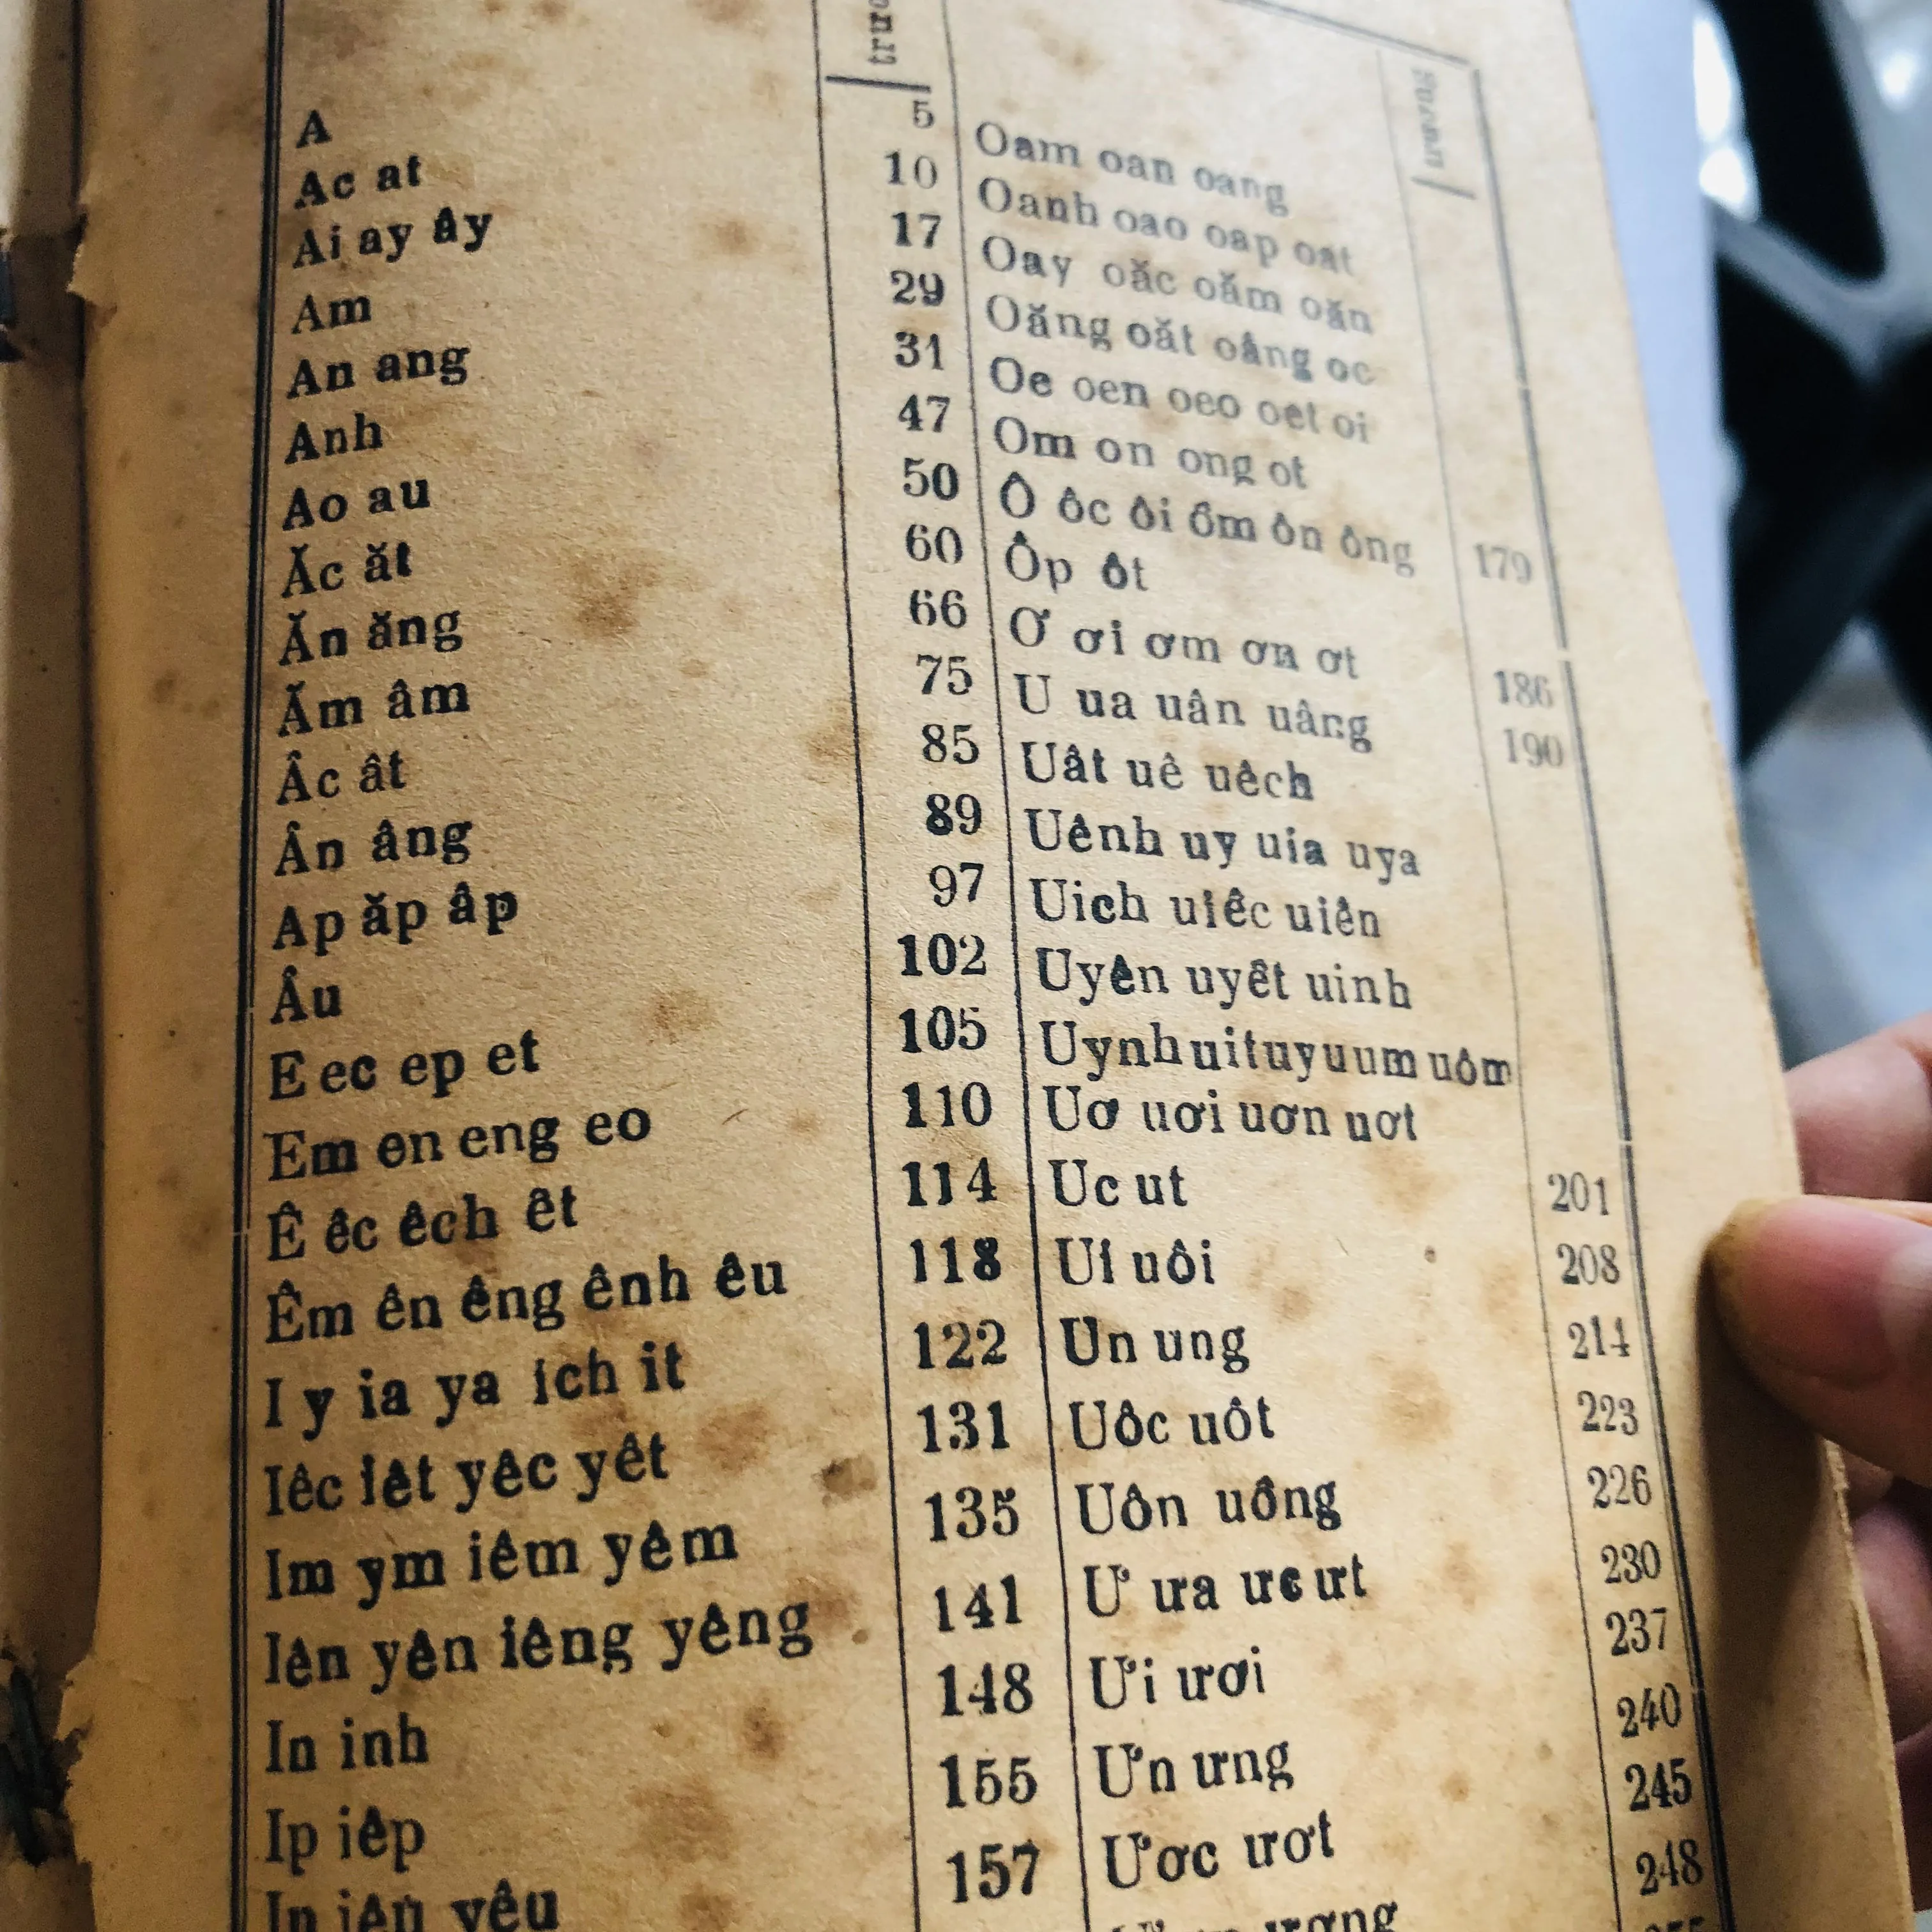 A 5
Ac at 10
Ai ay ây 17
Am 29
An ang 31
Anh 47
Ao au 50
Ăc ăt 60
Ăn ăng 66
Ăm âm 75
Âc ât 85
Ân âng 89
Ap ăp âp 97
Âu 102
E ec ep et 105
Em en eng eo 110
Ê êc êch êt 114
Êm ên êng ênh êu 118
I y ia ya ich it 122
Iêc iêt yêc yêt 131
Im ym iêm yêm 135
Iên yên iêng yêng 141
In inh 148
Ip iêp 155
yêu 157
Oam oan oang
Oanh oao oap oat
Oay oăc oăm oăn
Oăng oăt oâng oc
Oe oen oeo oet oi
Om on ong ot
Ô ôc ôi ôm ôn ông 179
Ôp ôt
Ơ ơi ơm ơn ơt 186
U ua uân uâng 190
Uât uê uêch
Uênh uy uia uya
Uich uiêc uiên
Uyên uyêt uinh
Uynh uit uyu um uôm
Uơ uơi uơn uơt
Uc ut 201
Ui uôi 208
Un ung 214
Uôc uôt 223
Uôn uông 226
Ư ưa ưc ưt 230
Ưi ươi 237
Ưn ưng 240
Ươc ươt 245
248